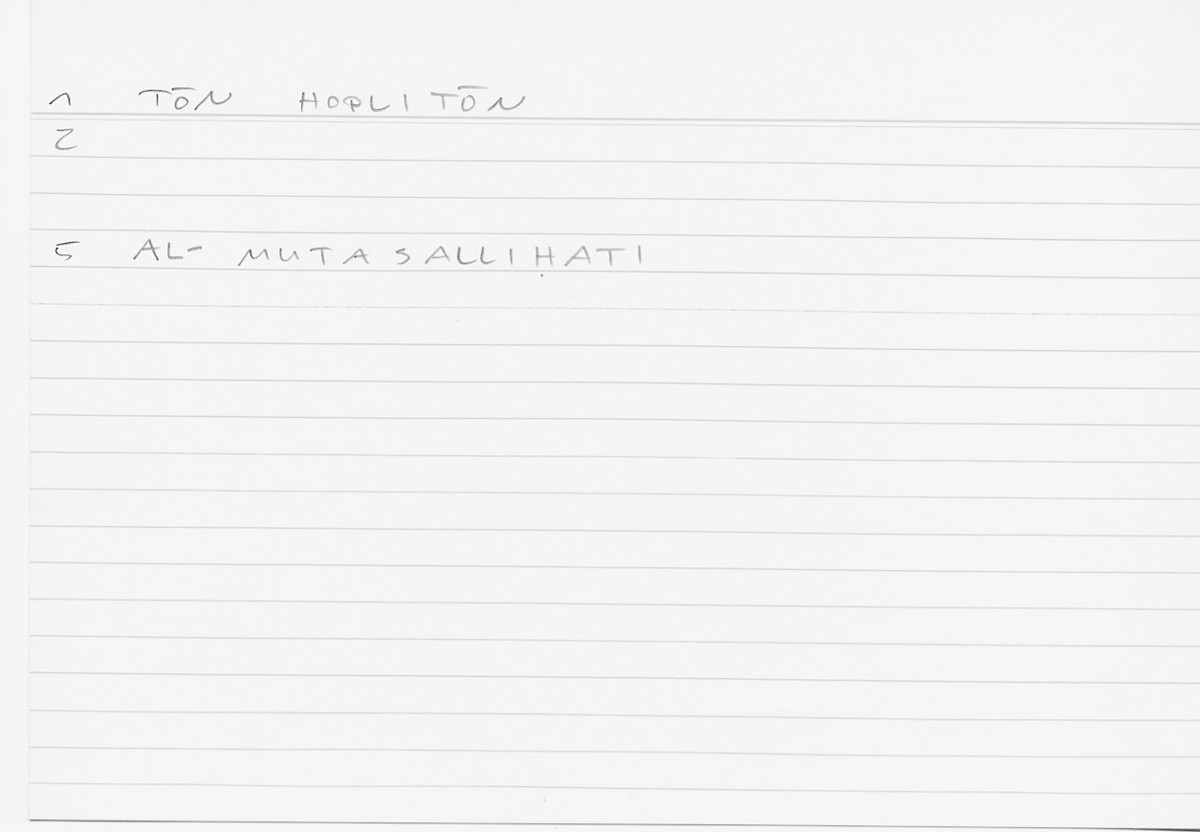 1 TŌN HOPLITŌN
2
5 AL- MUTASALLIḤATI